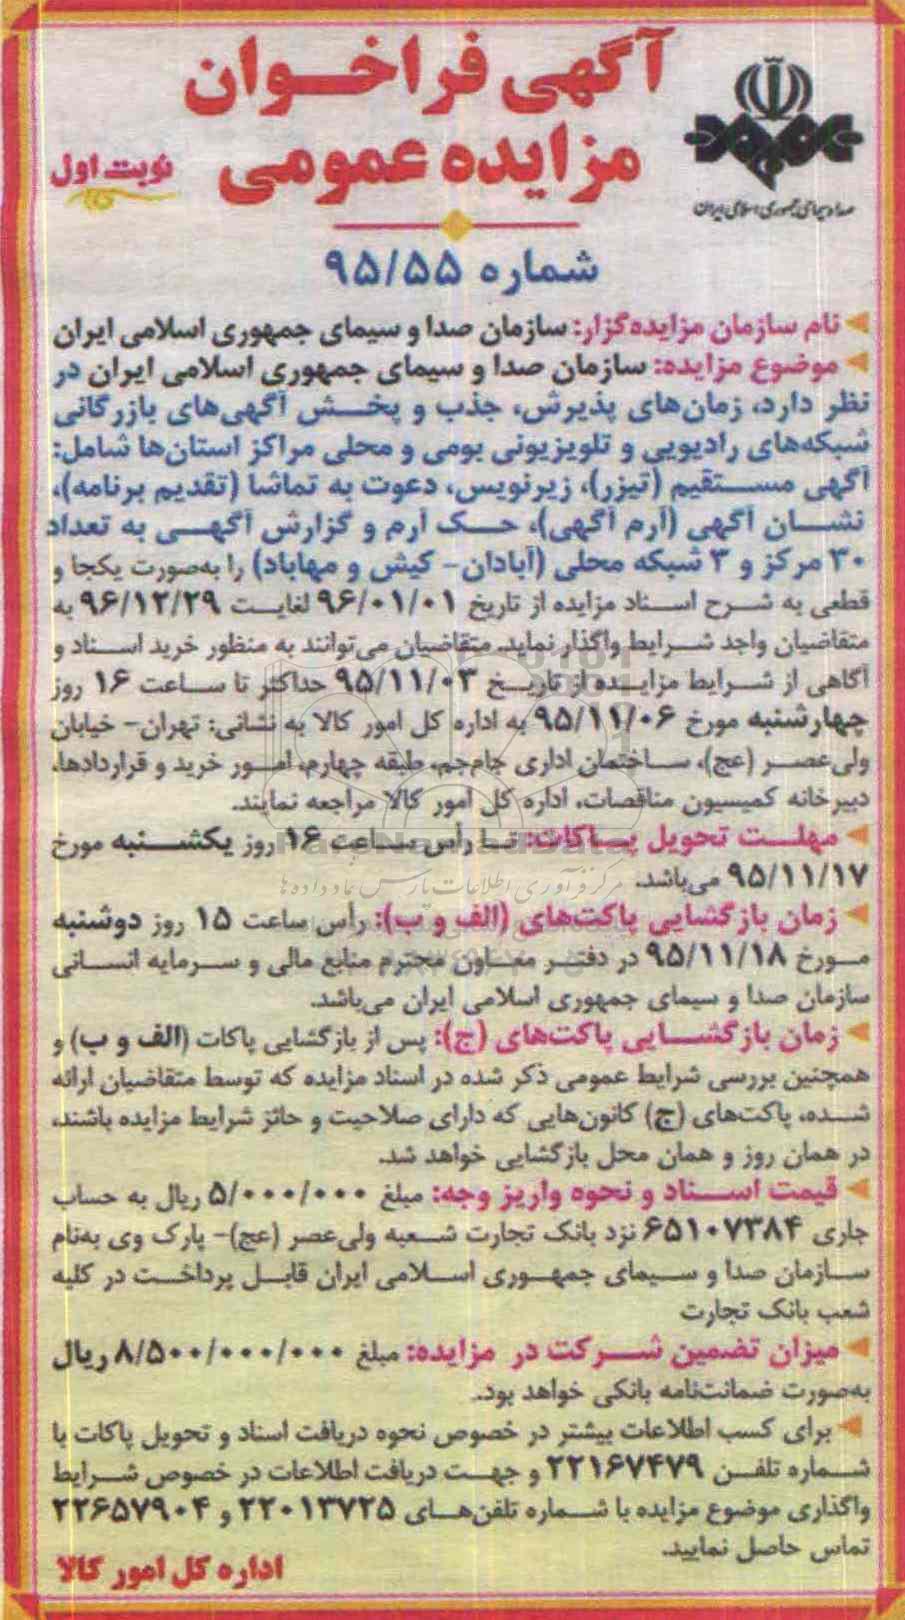 آگهی فراخوان
مزایده عمومی
نوبت اول
صدا و سیمای جمهوری اسلامی ایران
شماره ۹۵/۵۵
نام سازمان مزایده‌گزار: سازمان صدا و سیمای جمهوری اسلامی ایران
موضوع مزایده: سازمان صدا و سیمای جمهوری اسلامی ایران در
نظر دارد، زمان‌های پذیرش، جذب و پخش آگهی‌های بازرگانی
شبکه‌های رادیویی و تلویزیونی بومی و محلی مراکز استان‌ها شامل:
آگهی مستقیم (تیزر)، زیرنویس، دعوت به تماشا (تقدیم برنامه)،
نشان آگهی (آرم آگهی)، حک آرم و گزارش آگهی به تعداد
۳۰ مرکز و ۳ شبکه محلی (آبادان- کیش و مهاباد) را به‌صورت یکجا و
قطعی به شرح اسناد مزایده از تاریخ ۹۶/۰۱/۰۱ لغایت ۹۶/۱۲/۲۹ به
متقاضیان واجد شرایط واگذار نماید. متقاضیان می‌توانند به منظور خرید اسناد و
آگاهی از شرایط مزایده از تاریخ ۹۵/۱۱/۰۳ حداکثر تا ساعت ۱۶ روز
چهارشنبه مورخ ۹۵/۱۱/۰۶ به اداره کل امور کالا به نشانی: تهران- خیابان
ولی‌عصر (عج)، ساختمان اداری جام‌جم، طبقه چهارم، امور خرید و قراردادها،
دبیرخانه کمیسیون مناقصات، اداره کل امور کالا مراجعه نمایند.
مهلت تحویل پاکات: تا رأس ساعت ۱۶ روز یکشنبه مورخ
۹۵/۱۱/۱۷ می‌باشد.
مرکز فرآوری اطلاعات پارس نماد داده ها
زمان بازگشایی پاکت‌های (الف و ب): رأس ساعت ۱۵ روز دوشنبه
مورخ ۹۵/۱۱/۱۸ در دفتر معاون محترم منابع مالی و سرمایه انسانی
سازمان صدا و سیمای جمهوری اسلامی ایران می‌باشد.
زمان بازگشایی پاکت‌های (ج): پس از بازگشایی پاکات (الف و ب) و
همچنین بررسی شرایط عمومی ذکر شده در اسناد مزایده که توسط متقاضیان ارائه
شده، پاکت‌های (ج) کانون‌هایی که دارای صلاحیت و حائز شرایط مزایده باشند،
در همان روز و همان محل بازگشایی خواهد شد.
قیمت اسناد و نحوه واریز وجه: مبلغ ۵/۰۰۰/۰۰۰ ریال به حساب
جاری ۶۵۱۰۷۳۸۴ نزد بانک تجارت شعبه ولی‌عصر (عج)- پارک وی به‌نام
سازمان صدا و سیمای جمهوری اسلامی ایران قابل پرداخت در کلیه
شعب بانک تجارت
میزان تضمین شرکت در مزایده: مبلغ ۸/۵۰۰/۰۰۰/۰۰۰ ریال
به‌صورت ضمانت‌نامه بانکی خواهد بود.
برای کسب اطلاعات بیشتر در خصوص نحوه دریافت اسناد و تحویل پاکات با
شماره تلفن ۲۲۱۶۷۴۷۹ و جهت دریافت اطلاعات در خصوص شرایط
واگذاری موضوع مزایده با شماره تلفن‌های ۲۲۰۱۳۷۲۵ و ۲۲۶۵۷۹۰۴
تماس حاصل نمایید.
اداره کل امور کالا